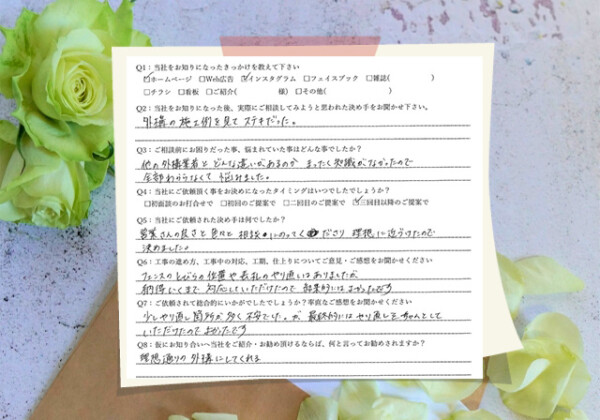 Q1：当社をお知りになったきっかけを教えて下さい
☑ホームページ □Web広告 ☑インスタグラム □フェイスブック □雑誌( )
□チラシ □看板 □ご紹介( 様) □その他( )
Q2：当社をお知りになった後、実際にご相談してみようと思われた決め手をお聞かせ下さい。
外構の施工例を見て ステキだった。
Q3：ご相談前にお困りだった事、悩まれていた事はどんな事でしたか？
他の外構業者と どんな違いがあるのか まったく知識がなかったので
全部わからなくて 悩みました。
Q4：当社にご依頼頂く事をお決めになったタイミングはいつでしたでしょうか？
□初面談のお打合せで □初回のご提案で □二回目のご提案で ☑三回目以降のご提案で
Q5：当社にご依頼された決め手は何でしたか？
営業さんの良さと 色々と 相談にのってくださり 理想に近づけたので
決めました。
Q6：工事の進め方、工事中の対応、工期、仕上りについてご意見・ご感想をお聞かせください
フェンスのとびらの位置や表札のやり直しはありましたが
納得いくまで 対応していただけたので 結果的にはよかったです
Q7：ご依頼されて総合的にいかがでしたでしょうか？率直なご感想をお聞かせください
少しやり直し箇所が多く不安でした。が 最終的にはやり直しもちゃんとして
いただけたので よかったです
Q8：仮にお知り合いへ当社をご紹介・お勧め頂けるならば、何と言ってお勧めされますか？
理想通りの外構にしてくれる